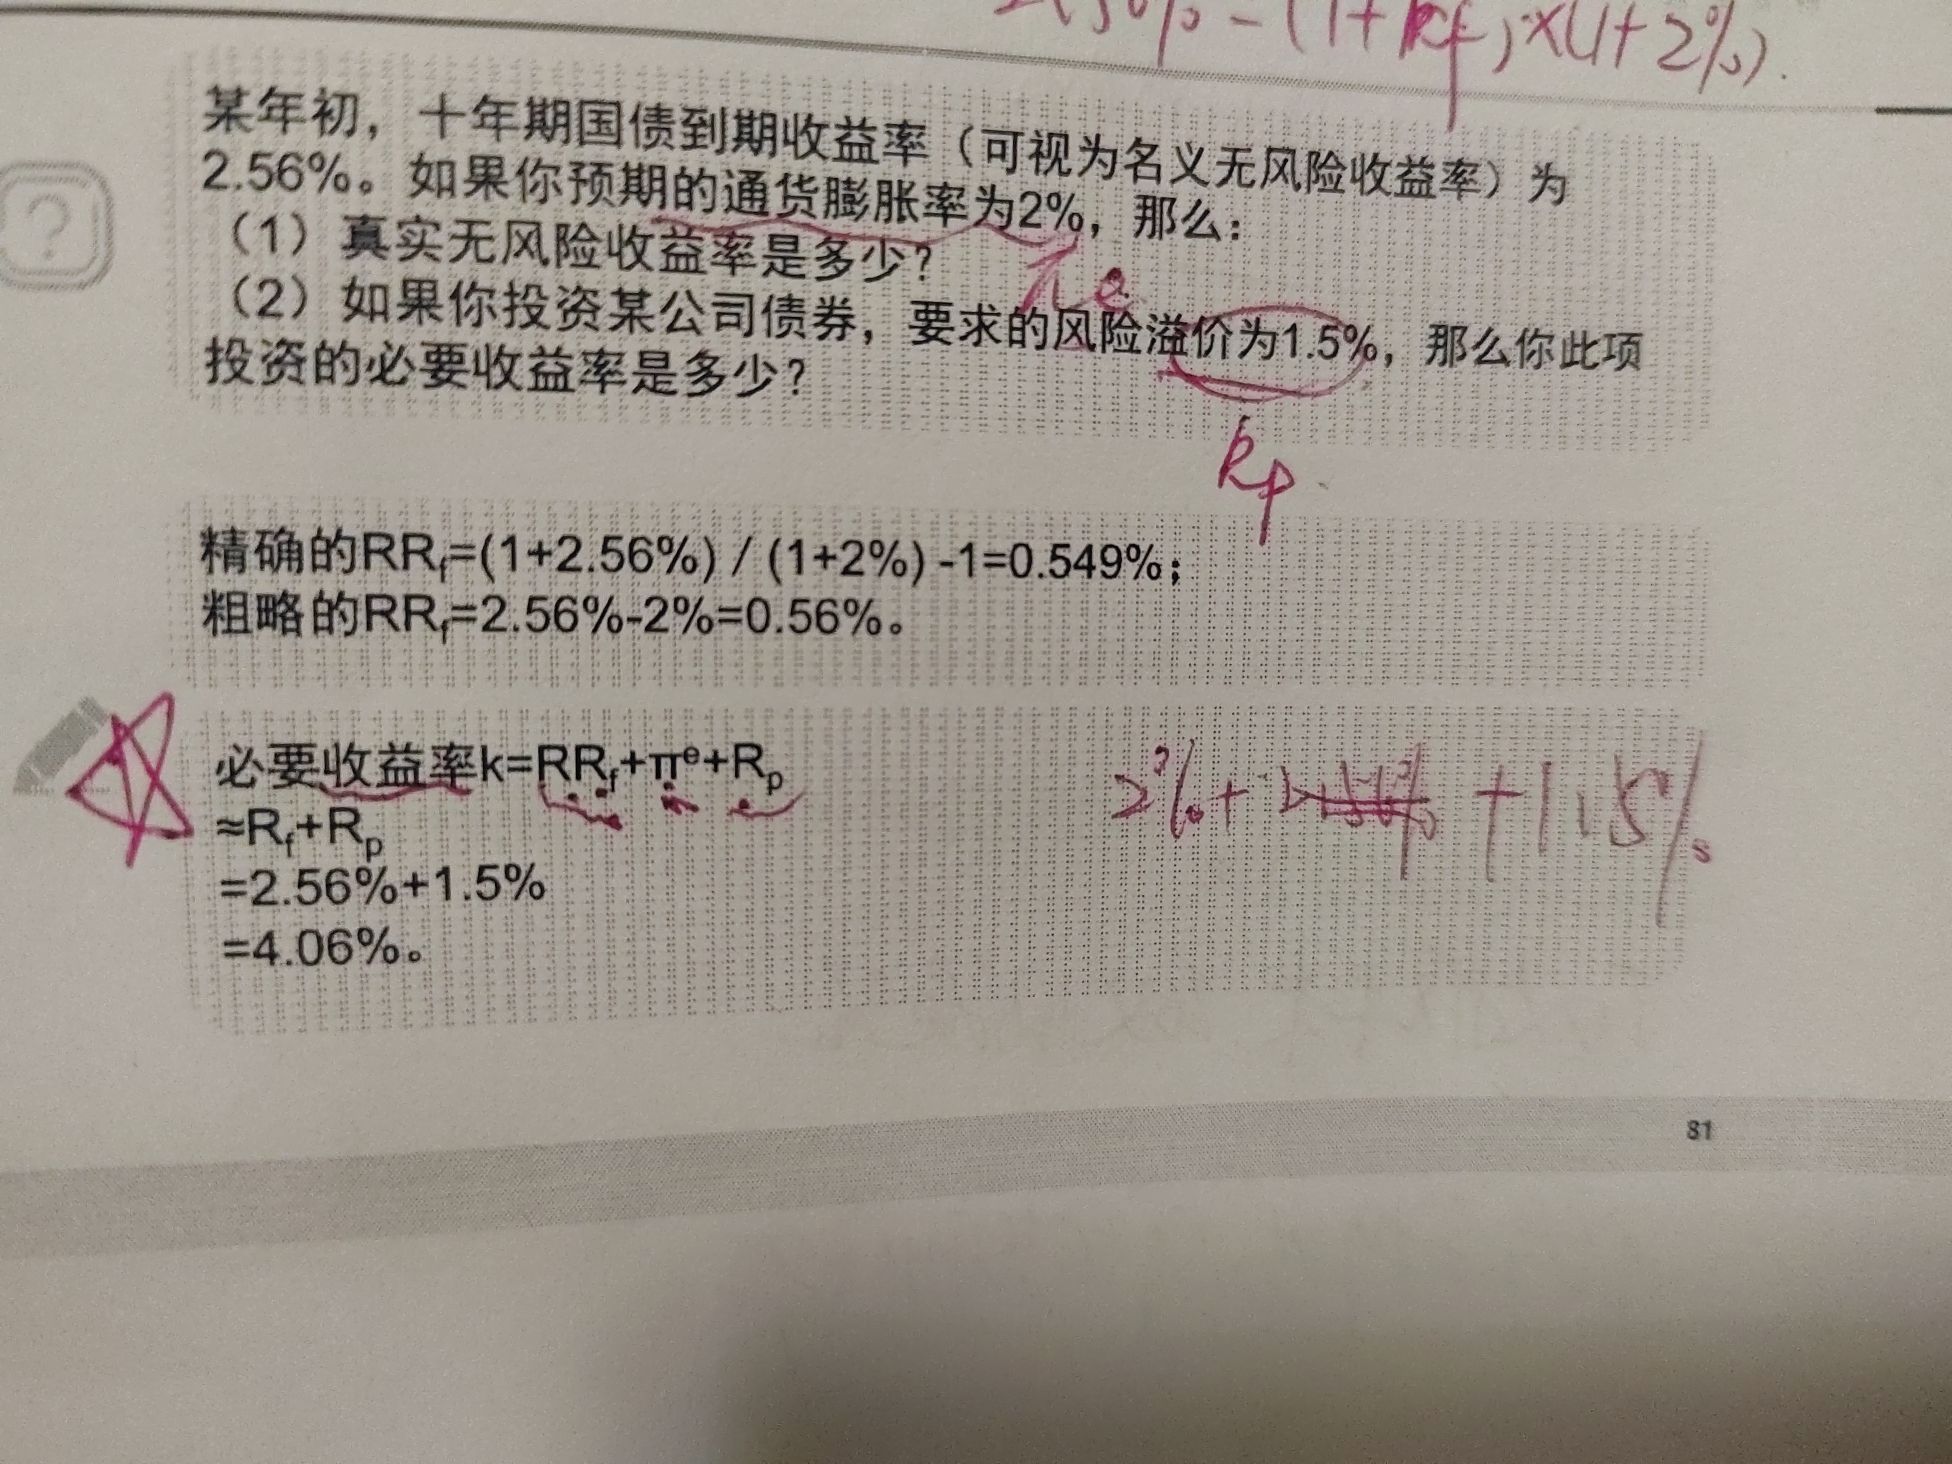 56% = (1+Rf)×(1+2%).
某年初，十年期国债到期收益率（可视为名义无风险收益率）为
2.56%。如果你预期的通货膨胀率为2%，那么：
（1）真实无风险收益率是多少？
πe
（2）如果你投资某公司债券，要求的风险溢价为1.5%，那么你此项
投资的必要收益率是多少？
?
Rp
精确的RRf=(1+2.56%) / (1+2%) -1=0.549%；
粗略的RRf=2.56%-2%=0.56%。
必要收益率k=RRf+πe+Rp
2%+ +1.5%
≈Rf+Rp
=2.56%+1.5%
=4.06%。
81